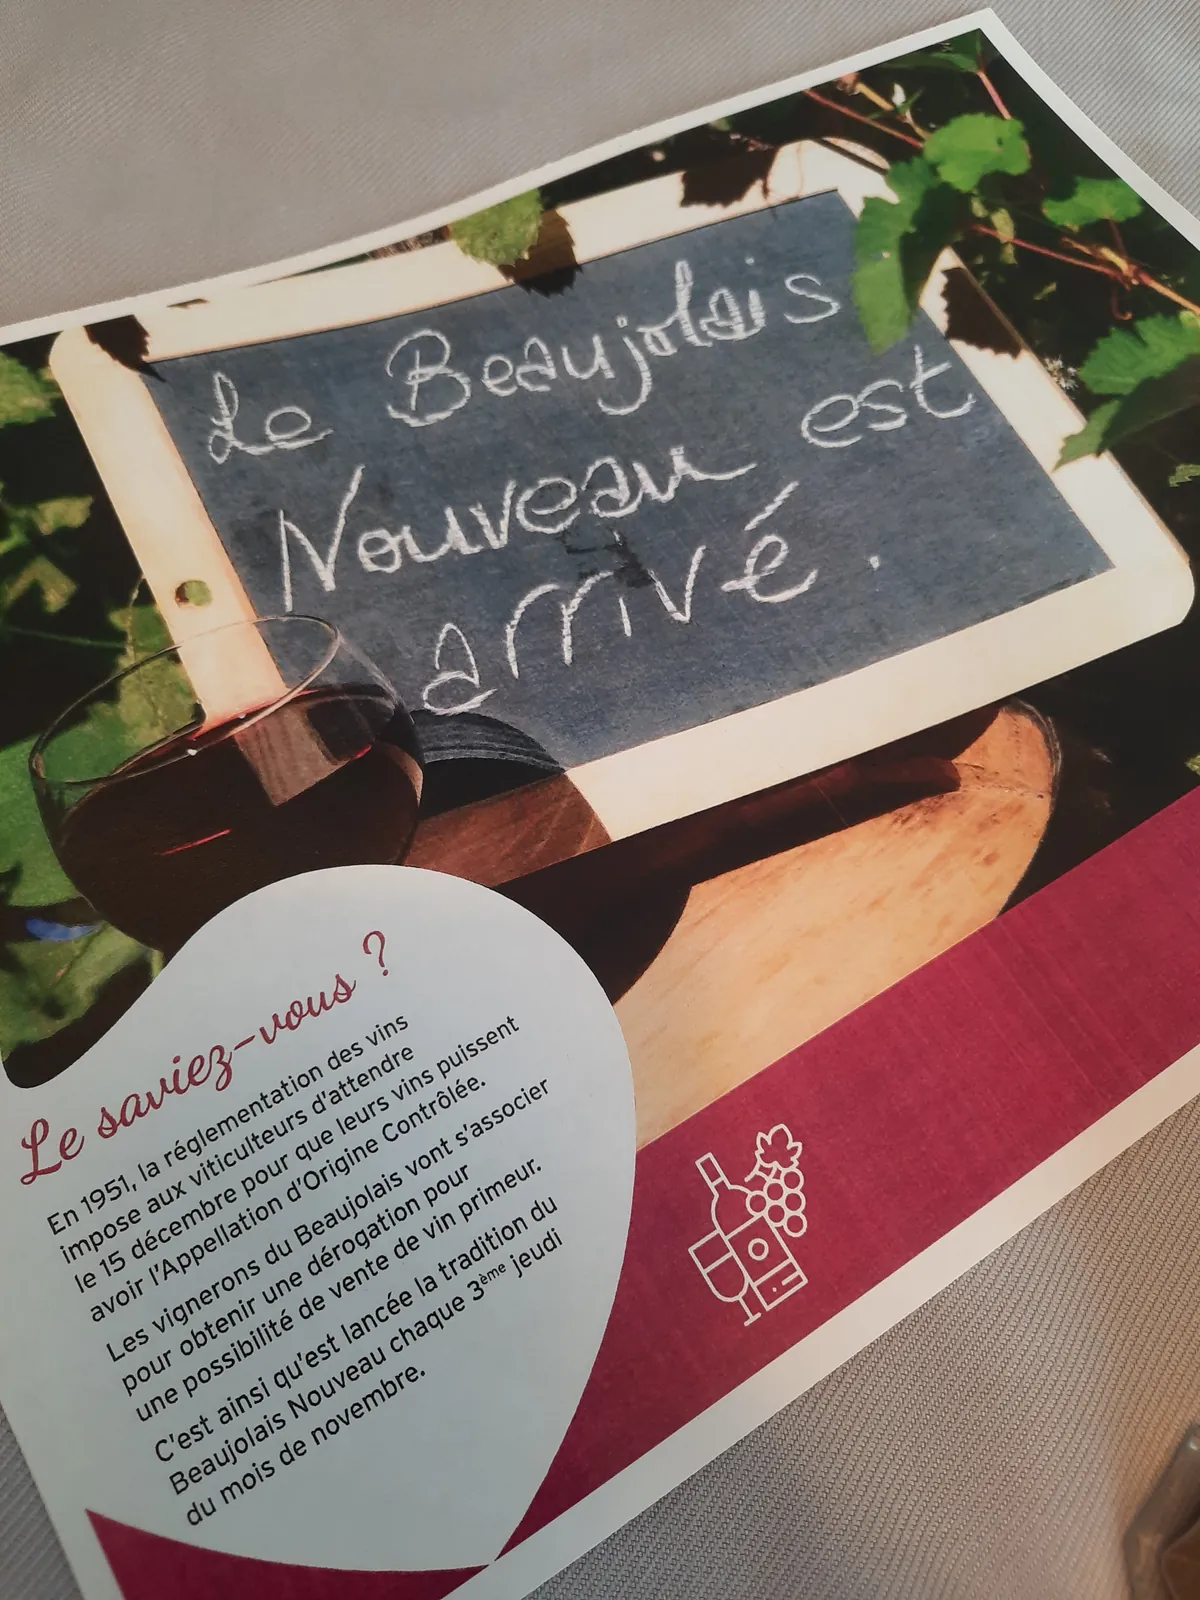 Le Beaujolais
Nouveau est
arrivé.
Le saviez-vous ?
En 1951, la réglementation des vins
impose aux viticulteurs d'attendre
le 15 décembre pour que leurs vins puissent
avoir l'Appellation d'Origine Contrôlée.
Les vignerons du Beaujolais vont s'associer
pour obtenir une dérogation pour
une possibilité de vente de vin primeur.
C'est ainsi qu'est lancée la tradition du
Beaujolais Nouveau chaque 3ème jeudi
du mois de novembre.